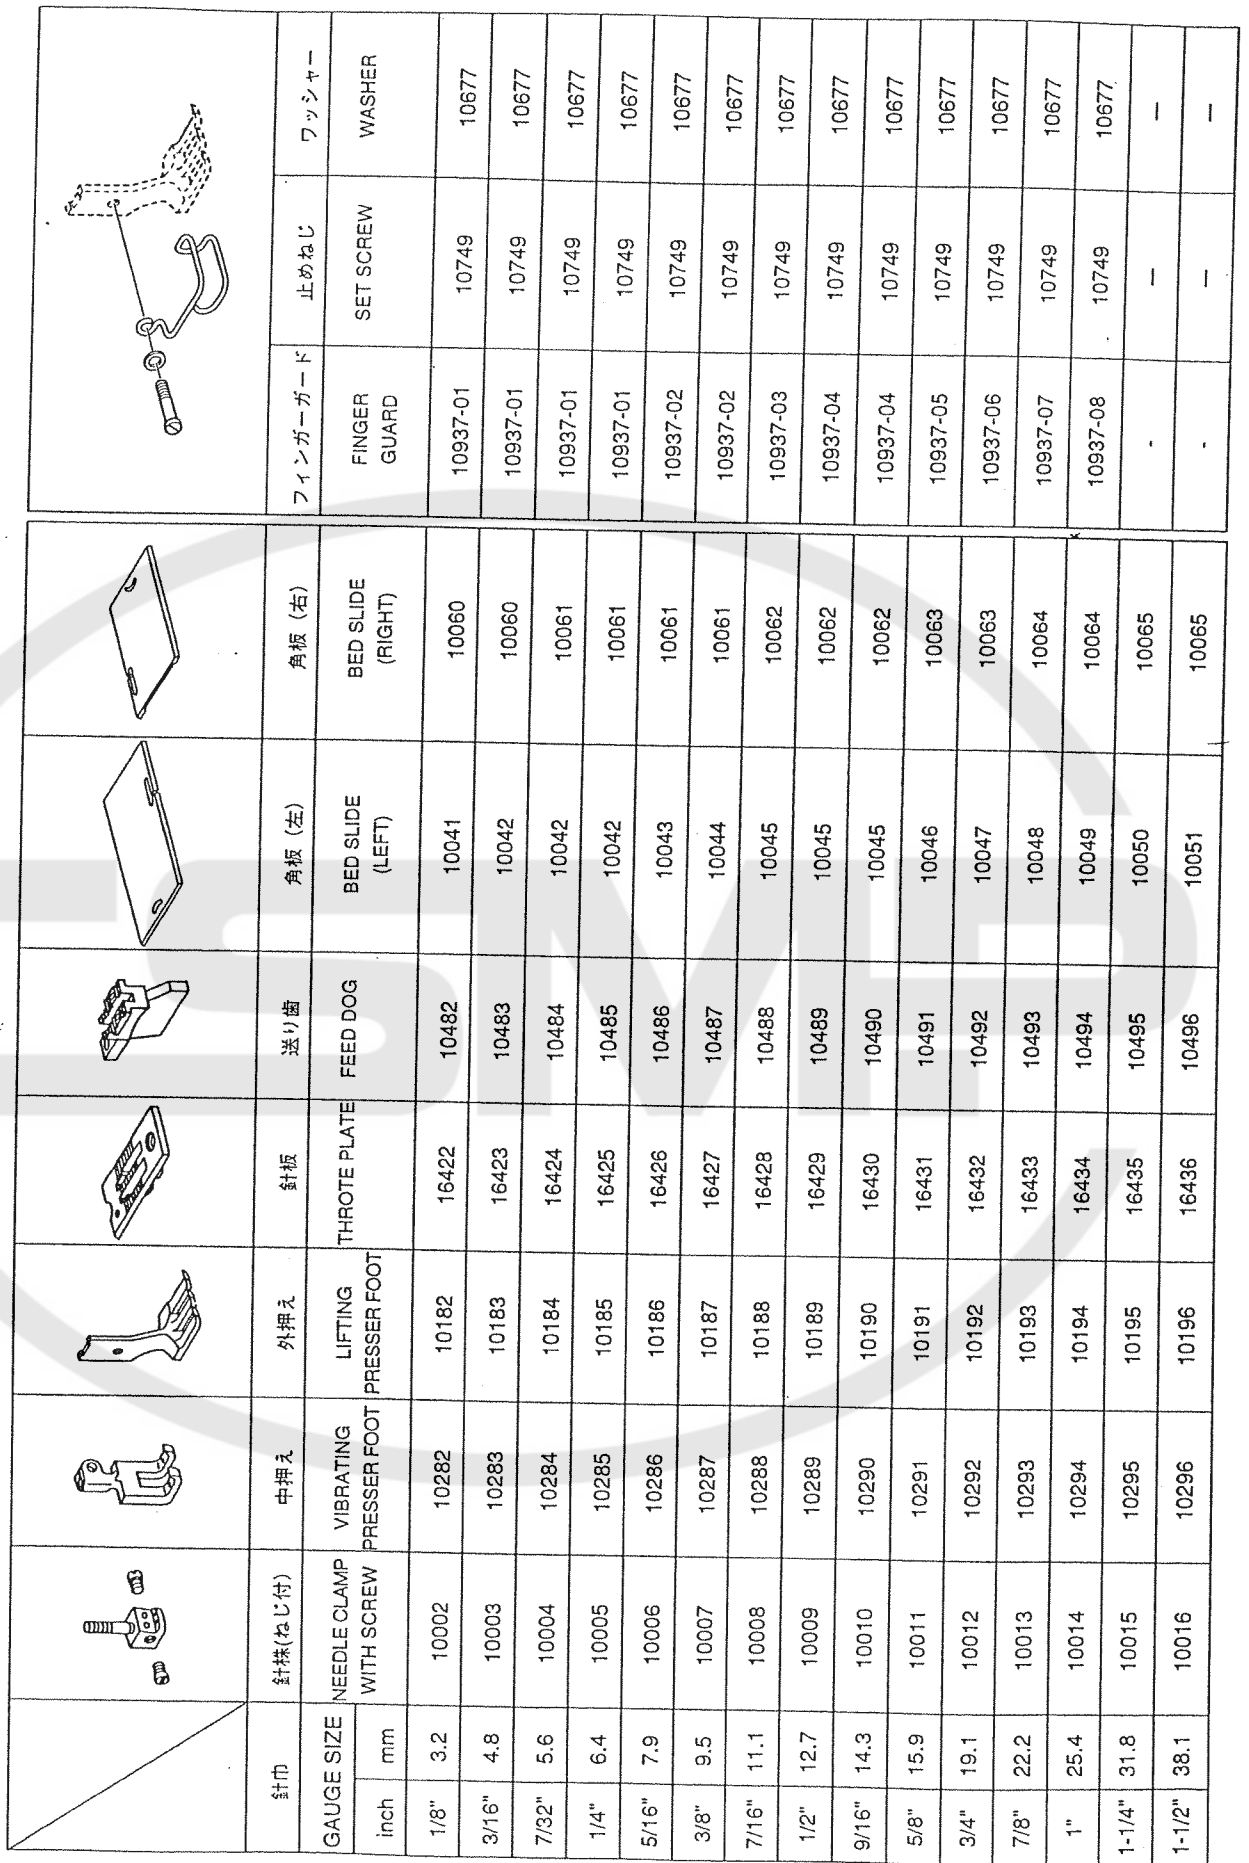 針巾 針株(ねじ付) 中押え 外押え 針板 送り歯 角板 (左) 角板 (右) フィンガーガード 止めねじ ワッシャー
GAUGE SIZE NEEDLE CLAMP VIBRATING LIFTING THROTE PLATE FEED DOG BED SLIDE BED SLIDE FINGER SET SCREW WASHER
inch mm WITH SCREW PRESSER FOOT PRESSER FOOT (LEFT) (RIGHT) GUARD
1/8" 3.2 10002 10282 10182 16422 10482 10041 10060 10937-01 10749 10677
3/16" 4.8 10003 10283 10183 16423 10483 10042 10060 10937-01 10749 10677
7/32" 5.6 10004 10284 10184 16424 10484 10042 10061 10937-01 10749 10677
1/4" 6.4 10005 10285 10185 16425 10485 10042 10061 10937-01 10749 10677
5/16" 7.9 10006 10286 10186 16426 10486 10043 10061 10937-02 10749 10677
3/8" 9.5 10007 10287 10187 16427 10487 10044 10061 10937-02 10749 10677
7/16" 11.1 10008 10288 10188 16428 10488 10045 10062 10937-03 10749 10677
1/2" 12.7 10009 10289 10189 16429 10489 10045 10062 10937-04 10749 10677
9/16" 14.3 10010 10290 10190 16430 10490 10045 10062 10937-04 10749 10677
5/8" 15.9 10011 10291 10191 16431 10491 10046 10063 10937-05 10749 10677
3/4" 19.1 10012 10292 10192 16432 10492 10047 10063 10937-06 10749 10677
7/8" 22.2 10013 10293 10193 16433 10493 10048 10064 10937-07 10749 10677
1" 25.4 10014 10294 10194 16434 10494 10049 10064 10937-08 10749 10677
1-1/4" 31.8 10015 10295 10195 16435 10495 10050 10065 - — —
1-1/2" 38.1 10016 10296 10196 16436 10496 10051 10065 - — —
SMP